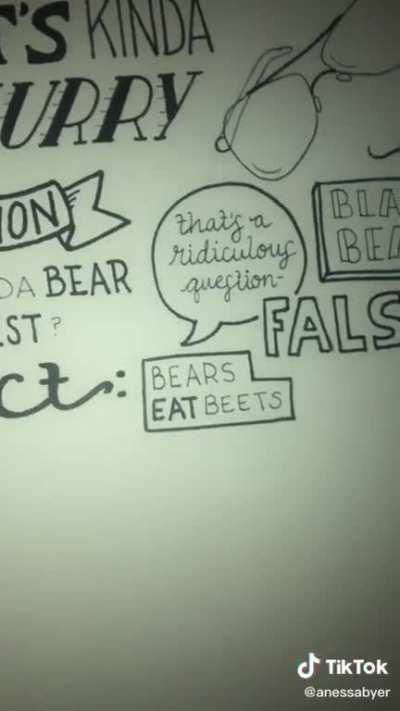 T'S KINDA
URRY
ION
that's a
ridiculous
-question-
BLA
BEA
DA BEAR
EST?
FALS
ct:
BEARS
EAT BEETS
TikTok
@anessabyer